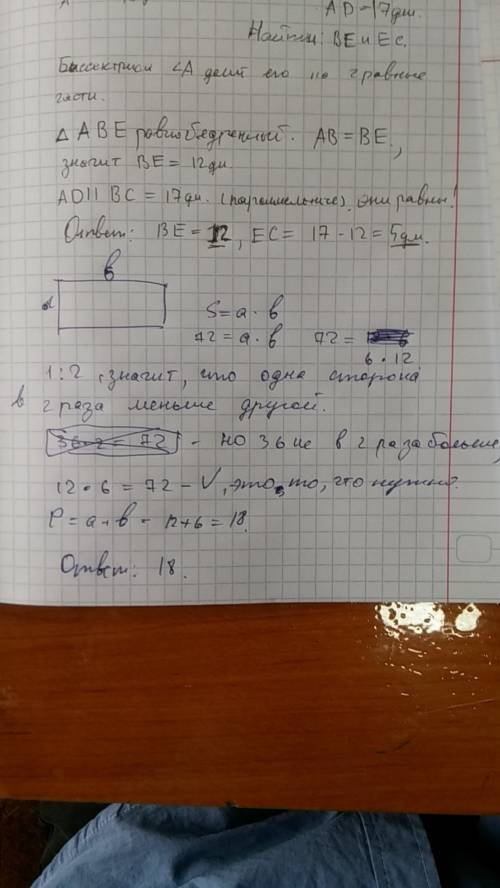 AD = 17 дм.
Найти: BE и EC.
Биссектриса ∠A делит его на 2 равные
части.
△ ABE равнобедренный. AB = BE,
значит BE = 12 дм
AD || BC = 17 дм. (параллельные), они равны!
Ответ: BE = 12, EC = 17 - 12 = 5 дм.
в
a
S = a · в
72 = a · в 72 =
6 · 12
1:2, значит, что одна сторона
в 2 раза меньше другой.
36·2 = 72 - но 36 не в 2 раза больше,
12 · 6 = 72 - V, это, то, что нужно.
P = a + в = 12 + 6 = 18.
Ответ: 18.